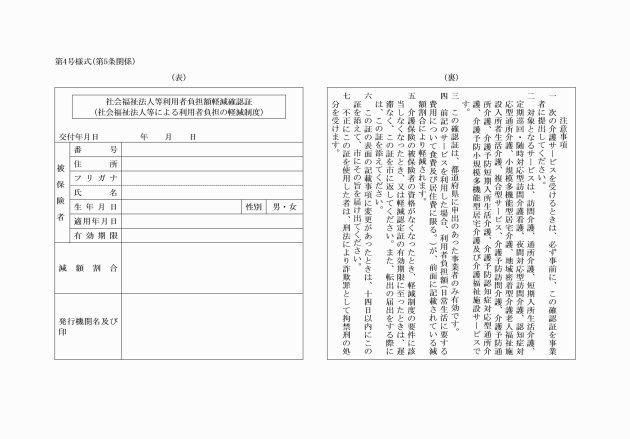 第4号様式(第5条関係)
(表)
社会福祉法人等利用者負担額軽減確認証
(社会福祉法人等による利用者負担の軽減制度)
交付年月日 年 月 日
被保険者
番号
住所
フリガナ
氏名
生年月日 性別 男・女
適用年月日
有効期限
減額割合
発行機関名及び
印
(裏)
注意事項
一 次の介護サービスを受けるときは、必ず事前に、この確認証を事業
者に提出してください。
二 対象となるサービスは、訪問介護、通所介護、短期入所生活介護、
定期巡回・随時対応型訪問介護看護、夜間対応型訪問介護、認知症対
応型通所介護、小規模多機能型居宅介護、地域密着型介護老人福祉施
設入所者生活介護、複合型サービス、介護予防訪問介護、介護予防通
所介護、介護予防短期入所生活介護、介護予防認知症対応型通所介
護、介護予防小規模多機能型居宅介護及び介護福祉施設サービスで
す。
三 この確認証は、都道府県に申出のあった事業者のみ有効です。
四 前記のサービスを利用した場合、利用者負担額(日常生活に要する
費用について食費及び居住費に限る。)が、前面に記載されている減
額割合により軽減されます。
五 介護保険の被保険者の資格がなくなったとき、軽減制度の要件に該
当しなくなったとき、又は軽減認定証の有効期限に至ったときは、遅
滞なく、この証を市に返してください。また、転出の届出をする際に
は、この証を添えてください。
六 この証の表面の記載事項に変更があったときは、十四日以内にこの
証を添えて、市にその旨を届け出てください。
七 不正にこの証を使用した者は、刑法により詐欺罪として拘禁刑の処
分を受けます。